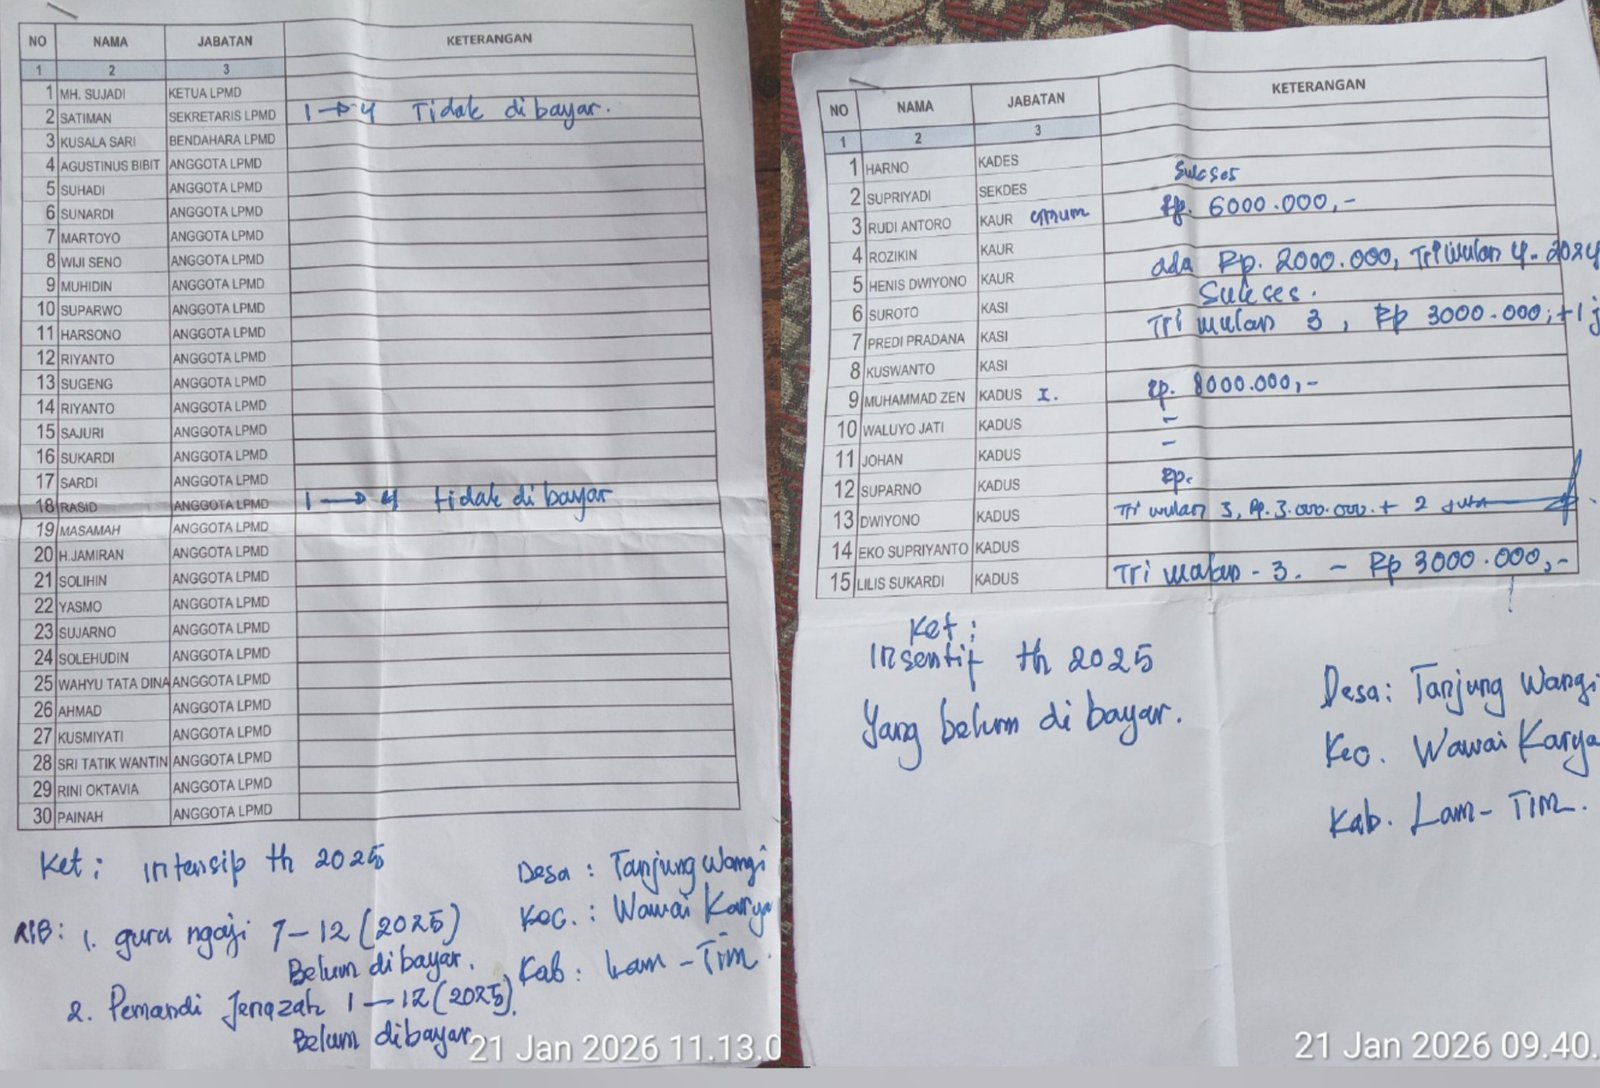 NO NAMA JABATAN KETERANGAN
1 2 3
1 MH. SUJADI KETUA LPMD
2 SATIMAN SEKRETARIS LPMD 1 → 4 Tidak dibayar.
3 KUSALA SARI BENDAHARA LPMD
4 AGUSTINUS BIBIT ANGGOTA LPMD
5 SUHADI ANGGOTA LPMD
6 SUNARDI ANGGOTA LPMD
7 MARTOYO ANGGOTA LPMD
8 WIJI SENO ANGGOTA LPMD
9 MUHIDIN ANGGOTA LPMD
10 SUPARWO ANGGOTA LPMD
11 HARSONO ANGGOTA LPMD
12 RIYANTO ANGGOTA LPMD
13 SUGENG ANGGOTA LPMD
14 RIYANTO ANGGOTA LPMD
15 SAJURI ANGGOTA LPMD
16 SUKARDI ANGGOTA LPMD
17 SARDI ANGGOTA LPMD
18 RASID ANGGOTA LPMD 1 → 4 tidak di bayar
19 MASAMAH ANGGOTA LPMD
20 H.JAMIRAN ANGGOTA LPMD
21 SOLIHIN ANGGOTA LPMD
22 YASMO ANGGOTA LPMD
23 SUJARNO ANGGOTA LPMD
24 SOLEHUDIN ANGGOTA LPMD
25 WAHYU TATA DINA ANGGOTA LPMD
26 AHMAD ANGGOTA LPMD
27 KUSMIYATI ANGGOTA LPMD
28 SRI TATIK WANTIN ANGGOTA LPMD
29 RINI OKTAVIA ANGGOTA LPMD
30 PAINAH ANGGOTA LPMD
Ket : intensip th 2025
1. guru ngaji 7 - 12 (2025)
Belum dibayar.
2. Pemandi Jenazah 1 - 12 (2025).
Belum dibayar
Desa : Tanjung Wangi
Kec. : Wawai Karya
Kab : Lam - Tim.
21 Jan 2026 11.13.0
NO NAMA JABATAN KETERANGAN
1 2 3
1 HARNO KADES
Sukses
2 SUPRIYADI SEKDES
Rp. 6000.000,-
3 RUDI ANTORO KAUR umum
4 ROZIKIN KAUR
ada Rp. 2000.000, Tri wulan 4 - 2024
5 HENIS DWIYONO KAUR
Sukses.
6 SUROTO KASI
Tri wulan 3, Rp 3000.000,+1 j
7 PREDI PRADANA KASI
8 KUSWANTO KASI
Rp. 8000.000,-
9 MUHAMMAD ZEN KADUS I.
-
10 WALUYO JATI KADUS
-
11 JOHAN KADUS
Rp.
12 SUPARNO KADUS
Tri wulan 3, Rp. 3.000.000.+ 2 juta
13 DWIYONO KADUS
14 EKO SUPRIYANTO KADUS
Tri wulan - 3. - Rp 3000.000,-
15 LILIS SUKARDI KADUS
Ket :
Insentif th 2025
Yang belum di bayar.
Desa: Tanjung Wangi
Kec. Wawai Karya
Kab. Lam - Tim.
21 Jan 2026 09.40.